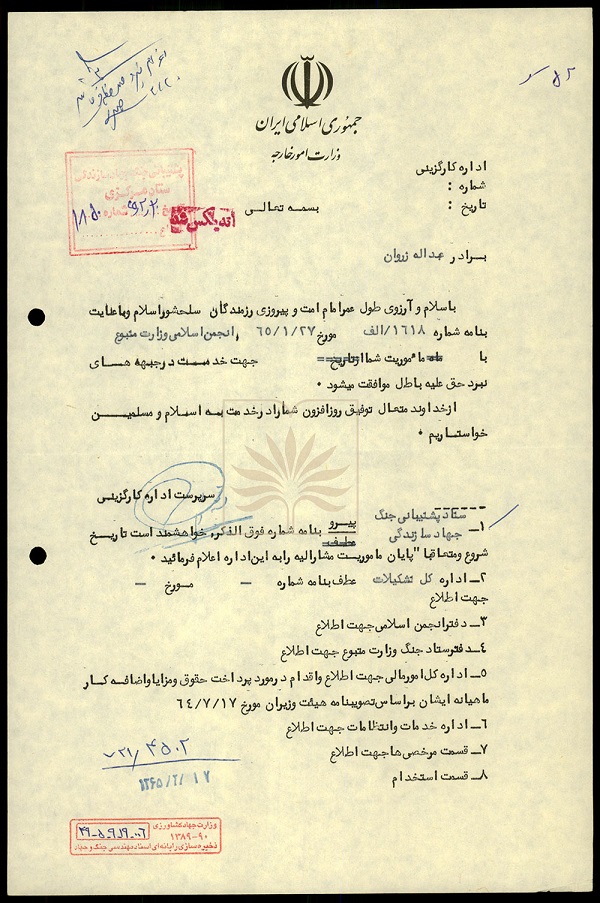 جمهوری اسلامی ایران
وزارت امور خارجه
۵۲
اداره کارگزینی
شماره :
تاریخ :
بسمه تعالی
ستاد مرکزی
شماره ۱۸۵۰
اندیکس شد
برادر عبداله زروان
باسلام و آرزوی طول عمر امام امت و پیروزی رزمندگان سلحشور اسلام و باعنایت
بنامه شماره ۱۶۱۸/الف مورخ ۶۵/۱/۲۷ انجمن اسلامی وزارت متبوع
با مأموریت شما از تاریخ جهت خدمت در جبهه های
نبرد حق علیه باطل موافقت میشود .
از خداوند متعال توفیق روزافزون شما را در خدمت به اسلام و مسلمین
خواستاریم .
سرپرست اداره کارگزینی
۱ــ ستاد پشتیبانی جنگ جهاد سازندگی پیرو عطف بنامه شماره فوق الذکر، خواهشمند است تاریخ
شروع و متعاقبا" پایان ماموریت مشارالیه را به این اداره اعلام فرمائید .
۲ــ اداره کل تشکیلات عطف بنامه شماره — مورخ —
جهت اطلاع
۳ــ دفتر انجمن اسلامی جهت اطلاع
۴ــ دفتر ستاد جنگ وزارت متبوع جهت اطلاع
۵ــ اداره کل امور مالی جهت اطلاع و اقدام در مورد پرداخت حقوق و مزایا و اضافه کار
ماهیانه ایشان براساس تصویبنامه هیئت وزیران مورخ ۶۴/۷/۱۷
۶ــ اداره خدمات و انتظامات جهت اطلاع
۷ــ قسمت مرخصی ها جهت اطلاع
۸ــ قسمت استخدام
۷۲۱/۴۵۰۲
۱۳۶۵/۲/۱۷
وزارت جهاد کشاورزی
۱۳۸۹-۹۰
ذخیره سازی رایانه ای اسناد مهندسی جنگ و جهاد